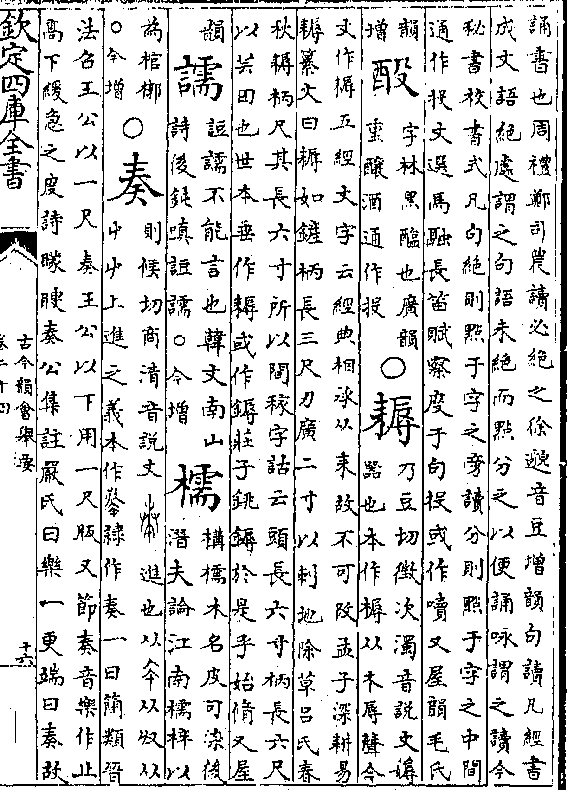 誦書也周禮鄭司農讀必絶之徐邈音豆增韻句讀凡經書
成文語絶處謂之句語未絶而點分之以便誦咏謂之讀今
秘書校書式凡句絶則㸃于字之旁讀分則㸃于字之中間
通作投文選馬融長笛賦察度于句投或作嘖又屋韻毛氏
韻增 酘 字林黑䤈也廣韻重釀酒通作投 ○ 耨 乃豆切徵次濁音說文耨器也本作槈从木辱聲今
文作耨五經文字云經典相承从耒故不可改孟子深耕易
耨纂文曰耨如鏟柄長三尺刀廣二寸以刺地除草吕氏春
秋耨柄尺其長六寸所以間稼字詁云頭長六寸柄長六尺
以芸田也世本垂作耨或作鎒莊子銚鎒於是乎始脩又屋
韻 譳 䛠譳不能言也韓文南山詩後鈍嗔䛠譳○今增 檽 構檽木名皮可染後潛夫論江南檽梓以
為棺椰○今增 ○ 奏 則候切商清音說文進也从夲从収从屮屮上進之義本作隸作奏一曰簡類晉
法召王公以一尺奏王公以下用一尺版又節奏音樂作止
髙下緩急之度詩矇瞍奏公集註嚴氏曰樂一更端曰奏故
欽定四庫全書
古今韻會舉要
卷二十四
十六